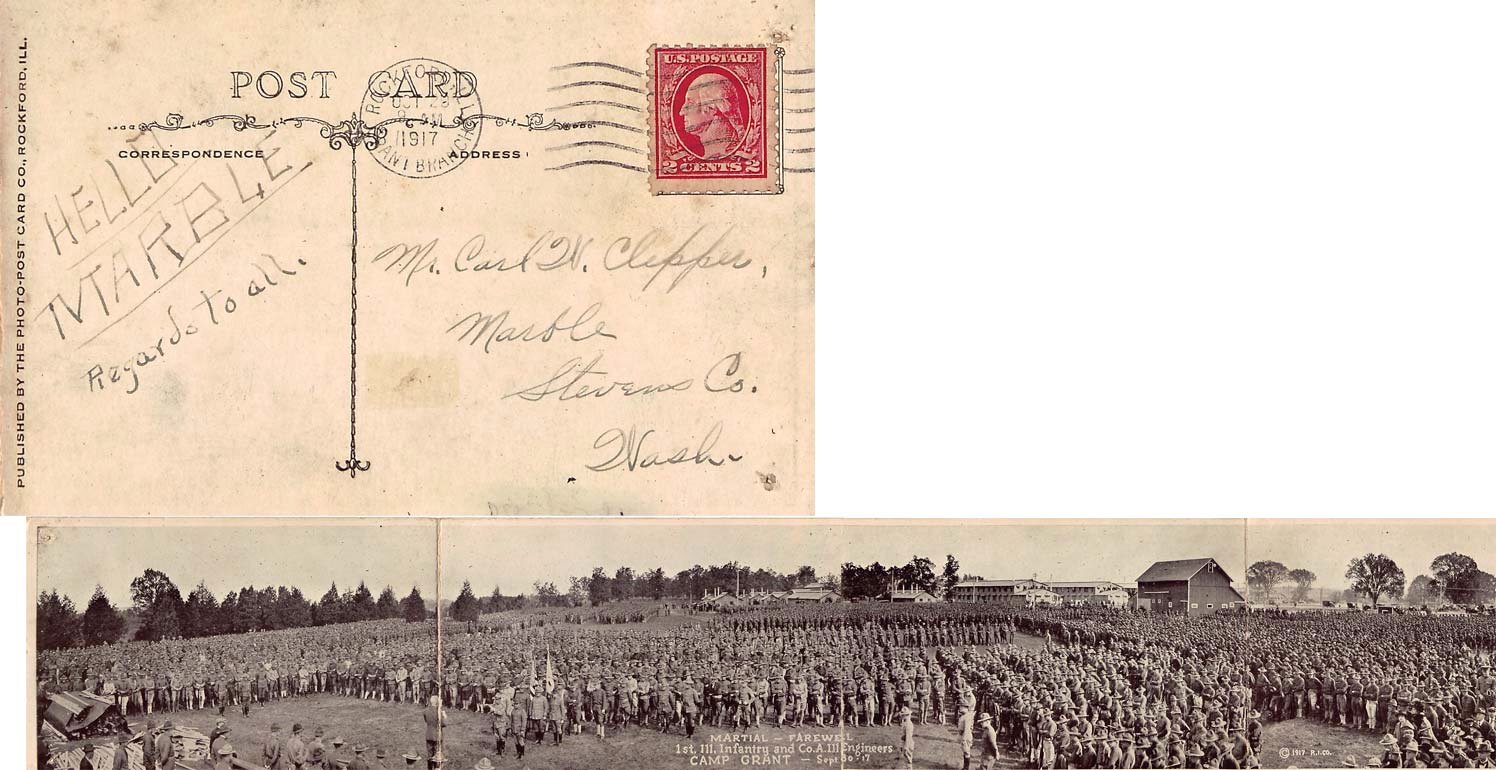 PUBLISHED BY THE PHOTO-POST CARD CO., ROCKFORD, ILL.
POST CARD
ROCKFORD, ILL.
OCT 29
1917
GRANT BRANCH
U.S. POSTAGE
2 CENTS 2
CORRESPONDENCE
ADDRESS
HELLO
MARBLE
Regards to all.
Mr. Carl W. Clepper,
Marble
Stevens Co.
Wash.
MARTIAL - FAREWELL
1st, Ill, Infantry and Co. A. Ill Engineers
CAMP GRANT - Sept 30-17
© 1917 R.I.CO.